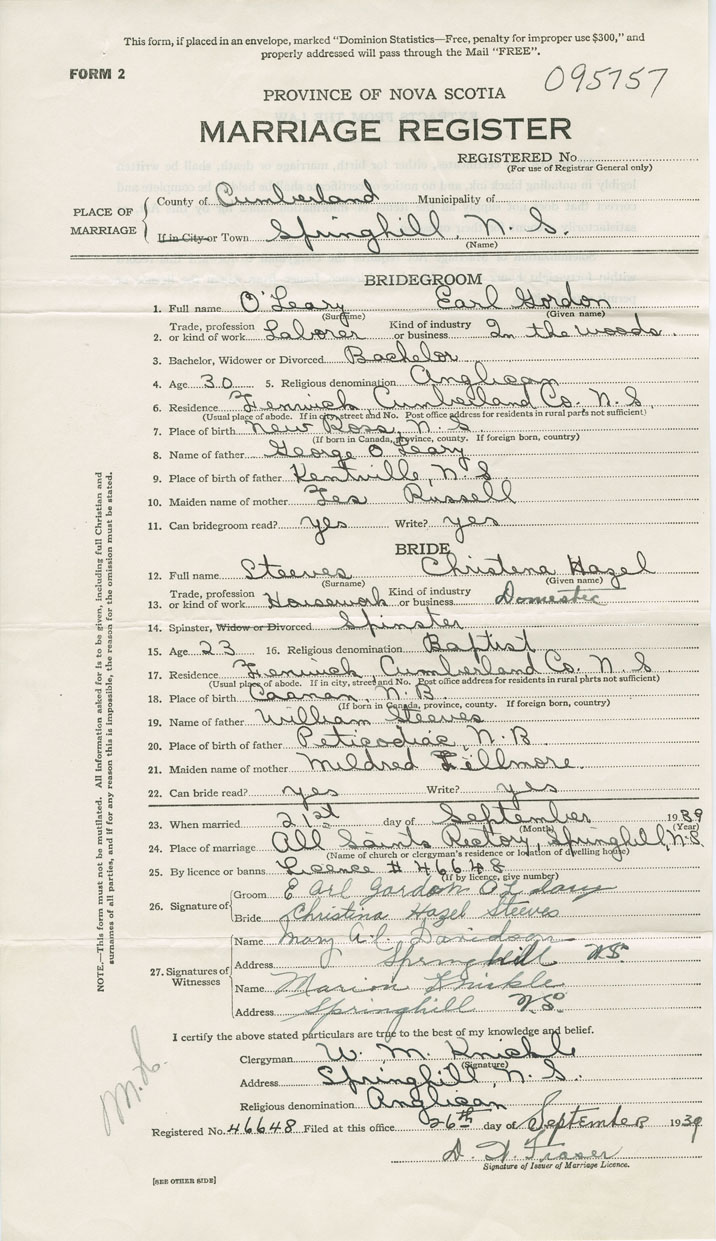 This form, if placed in an envelope, marked "Dominion Statistics—Free, penalty for improper use $300," and
properly addressed will pass through the Mail "FREE".
FORM 2
095757
PROVINCE OF NOVA SCOTIA
MARRIAGE REGISTER
REGISTERED No.
(For use of Registrar General only)
PLACE OF MARRIAGE
County of Cumberland Municipality of
If in City or Town Springhill, N. S.
(Name)
BRIDEGROOM
1. Full name O'Leary Earl Gordon
(Surname) (Given name)
2. Trade, profession or kind of work Laborer Kind of industry or business In the woods
3. Bachelor, Widower or Divorced Bachelor
4. Age 30 5. Religious denomination Anglican
6. Residence Fenwick Cumberland Co. N. S.
(Usual place of abode. If in city, street and No. Post office address for residents in rural parts not sufficient)
7. Place of birth New Ross, N. S.
(If born in Canada, province, county. If foreign born, country)
8. Name of father George O'Leary
9. Place of birth of father Kentville, N. S
10. Maiden name of mother Fes Russell
11. Can bridegroom read? yes Write? yes
BRIDE
12. Full name Steeves Christena Hazel
(Surname) (Given name)
13. Trade, profession or kind of work Housework Kind of industry or business Domestic
14. Spinster, Widow or Divorced Spinster
15. Age 23 16. Religious denomination Baptist
17. Residence Fenwick Cumberland Co. N. S
(Usual place of abode. If in city, street and No. Post office address for residents in rural parts not sufficient)
18. Place of birth Caanan, N. B.
(If born in Canada, province, county. If foreign born, country)
19. Name of father William Steeves
20. Place of birth of father Peticodiac, N. B
21. Maiden name of mother Mildred Fillmore.
22. Can bride read? yes Write? yes
23. When married 21st day of September 1939
(Month) (Year)
24. Place of marriage All Saints Rectory, Springhill, N. S.
(Name of church or clergyman's residence or location of dwelling house)
25. By licence or banns Licence # 46648
(If by licence, give number)
26. Signature of
Groom Earl Gordon O'Leary
Bride Christina Hazel Steeves
27. Signatures of Witnesses
Name Mary A. C. Davidson
Address Springhill N.S.
Name Marion Knickle
Address Springhill N.S.
I certify the above stated particulars are true to the best of my knowledge and belief.
Clergyman W. M. Knickle
(Signature)
Address Springhill, N. S.
Religious denomination Anglican
Registered No. 46648 Filed at this office 26th day of September 1939
Fraser
Signature of Issuer of Marriage Licence.
[SEE OTHER SIDE]
NOTE.—This form must not be mutilated. All information asked for is to be given, including full Christian and
surnames of all parties, and if for any reason this is impossible, the reason for the omission must be stated.